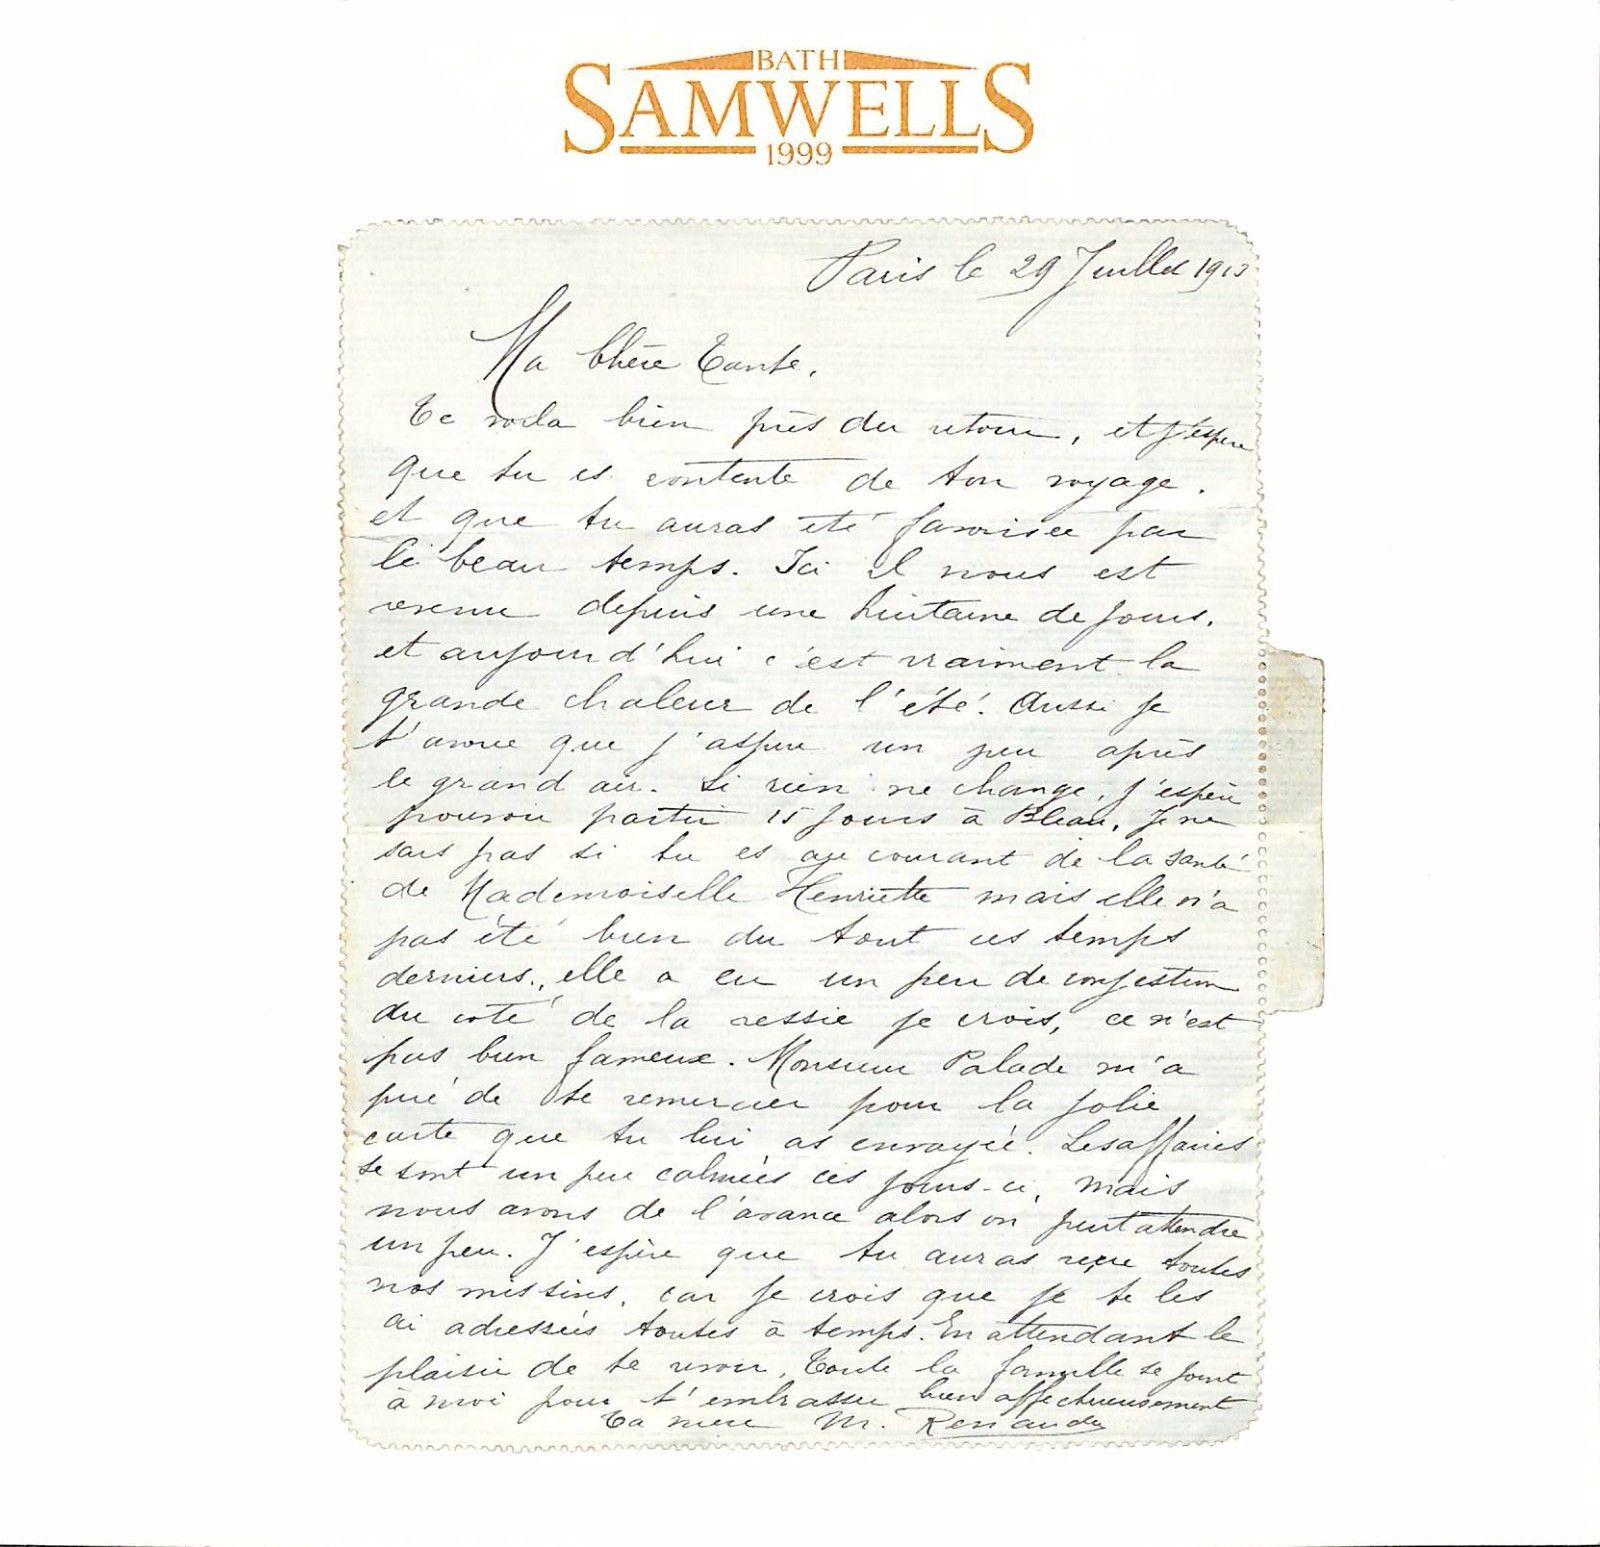 BATH
SAMWELLS
1999
Paris le 29 Juillet 1913
Ma Chère Tante,
Te voila bien près du retour, et j'espère
que tu es contente de ton voyage.
et que tu auras été favorisée par
le beau temps. Ici il nous est
revenu depuis une huitaine de jours.
et aujourd'hui c'est vraiment la
grande chaleur de l'été. Aussi je
t'avoue que j'aspire un peu après
le grand air. Si rien ne change, j'espère
pouvoir partir 15 jours à Bleau. Je ne
sais pas si tu es au courant de la santé
de Mademoiselle Henriette mais elle n'a
pas été bien du tout ces temps
derniers., elle a eu un peu de congestion
du coté de la vessie je crois, ce n'est
pas bien fameux. Monsieur Palade m'a
prié de te remercier pour la jolie
carte que tu lui as envoyée. Les affaires
se sont un peu calmées ces jours-ci, mais
nous avons de l'avance alors on peut attendre
un peu. J'espère que tu auras reçu toutes
nos missives, car je crois que je te les
ai adressées toutes à temps. En attendant le
plaisir de te revoir, Toute la famille se joint
à moi pour t'embrasser bien affectueusement
Ta nièce M.